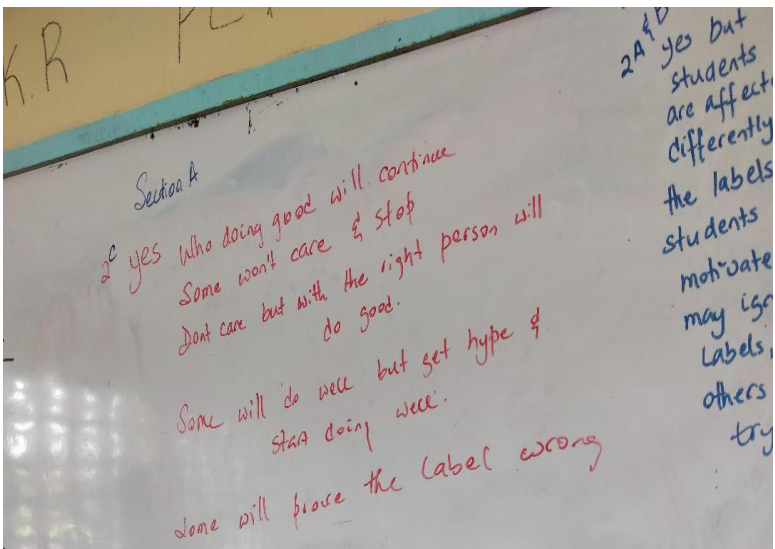 K.R
Section A
2c yes Who doing good will continue
Some won't care & stop
Dont care but with the right person will
do good.
Some will do well but get hype &
start doing well.
Some will prove the label wrong
2A & D yes but
students
are affect
differently
the labels
students
motivate
may ign
Labels,
others
try